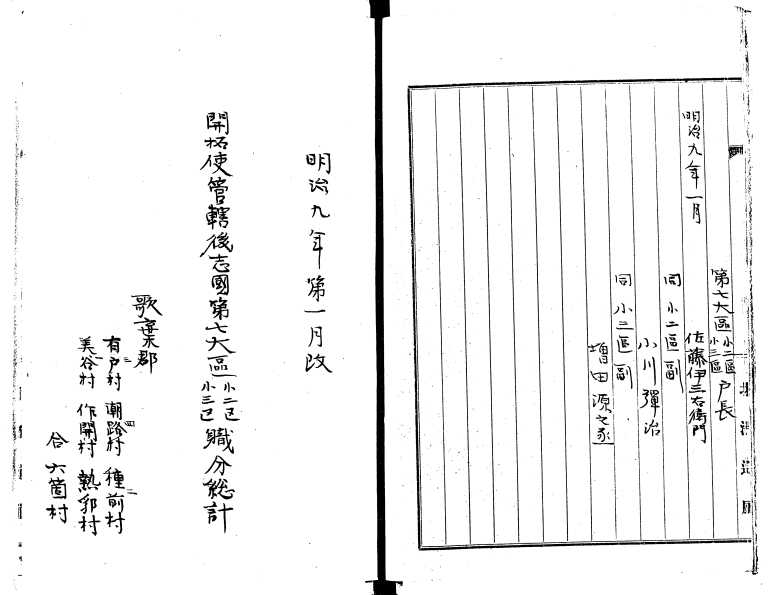 明治九年一月
第七大區 小二區 小三區 戸長
佐藤伊三右衛門
同 小二區副
小川彈治
同 小三區副
増田源之丞
明治九年第一月改
開拓使管轄後志國第七大區 小二區 小三區 職分総計
歌棄郡
有戸村 潮路村 種前村
美谷村 作開村 熱郛村
合六箇村